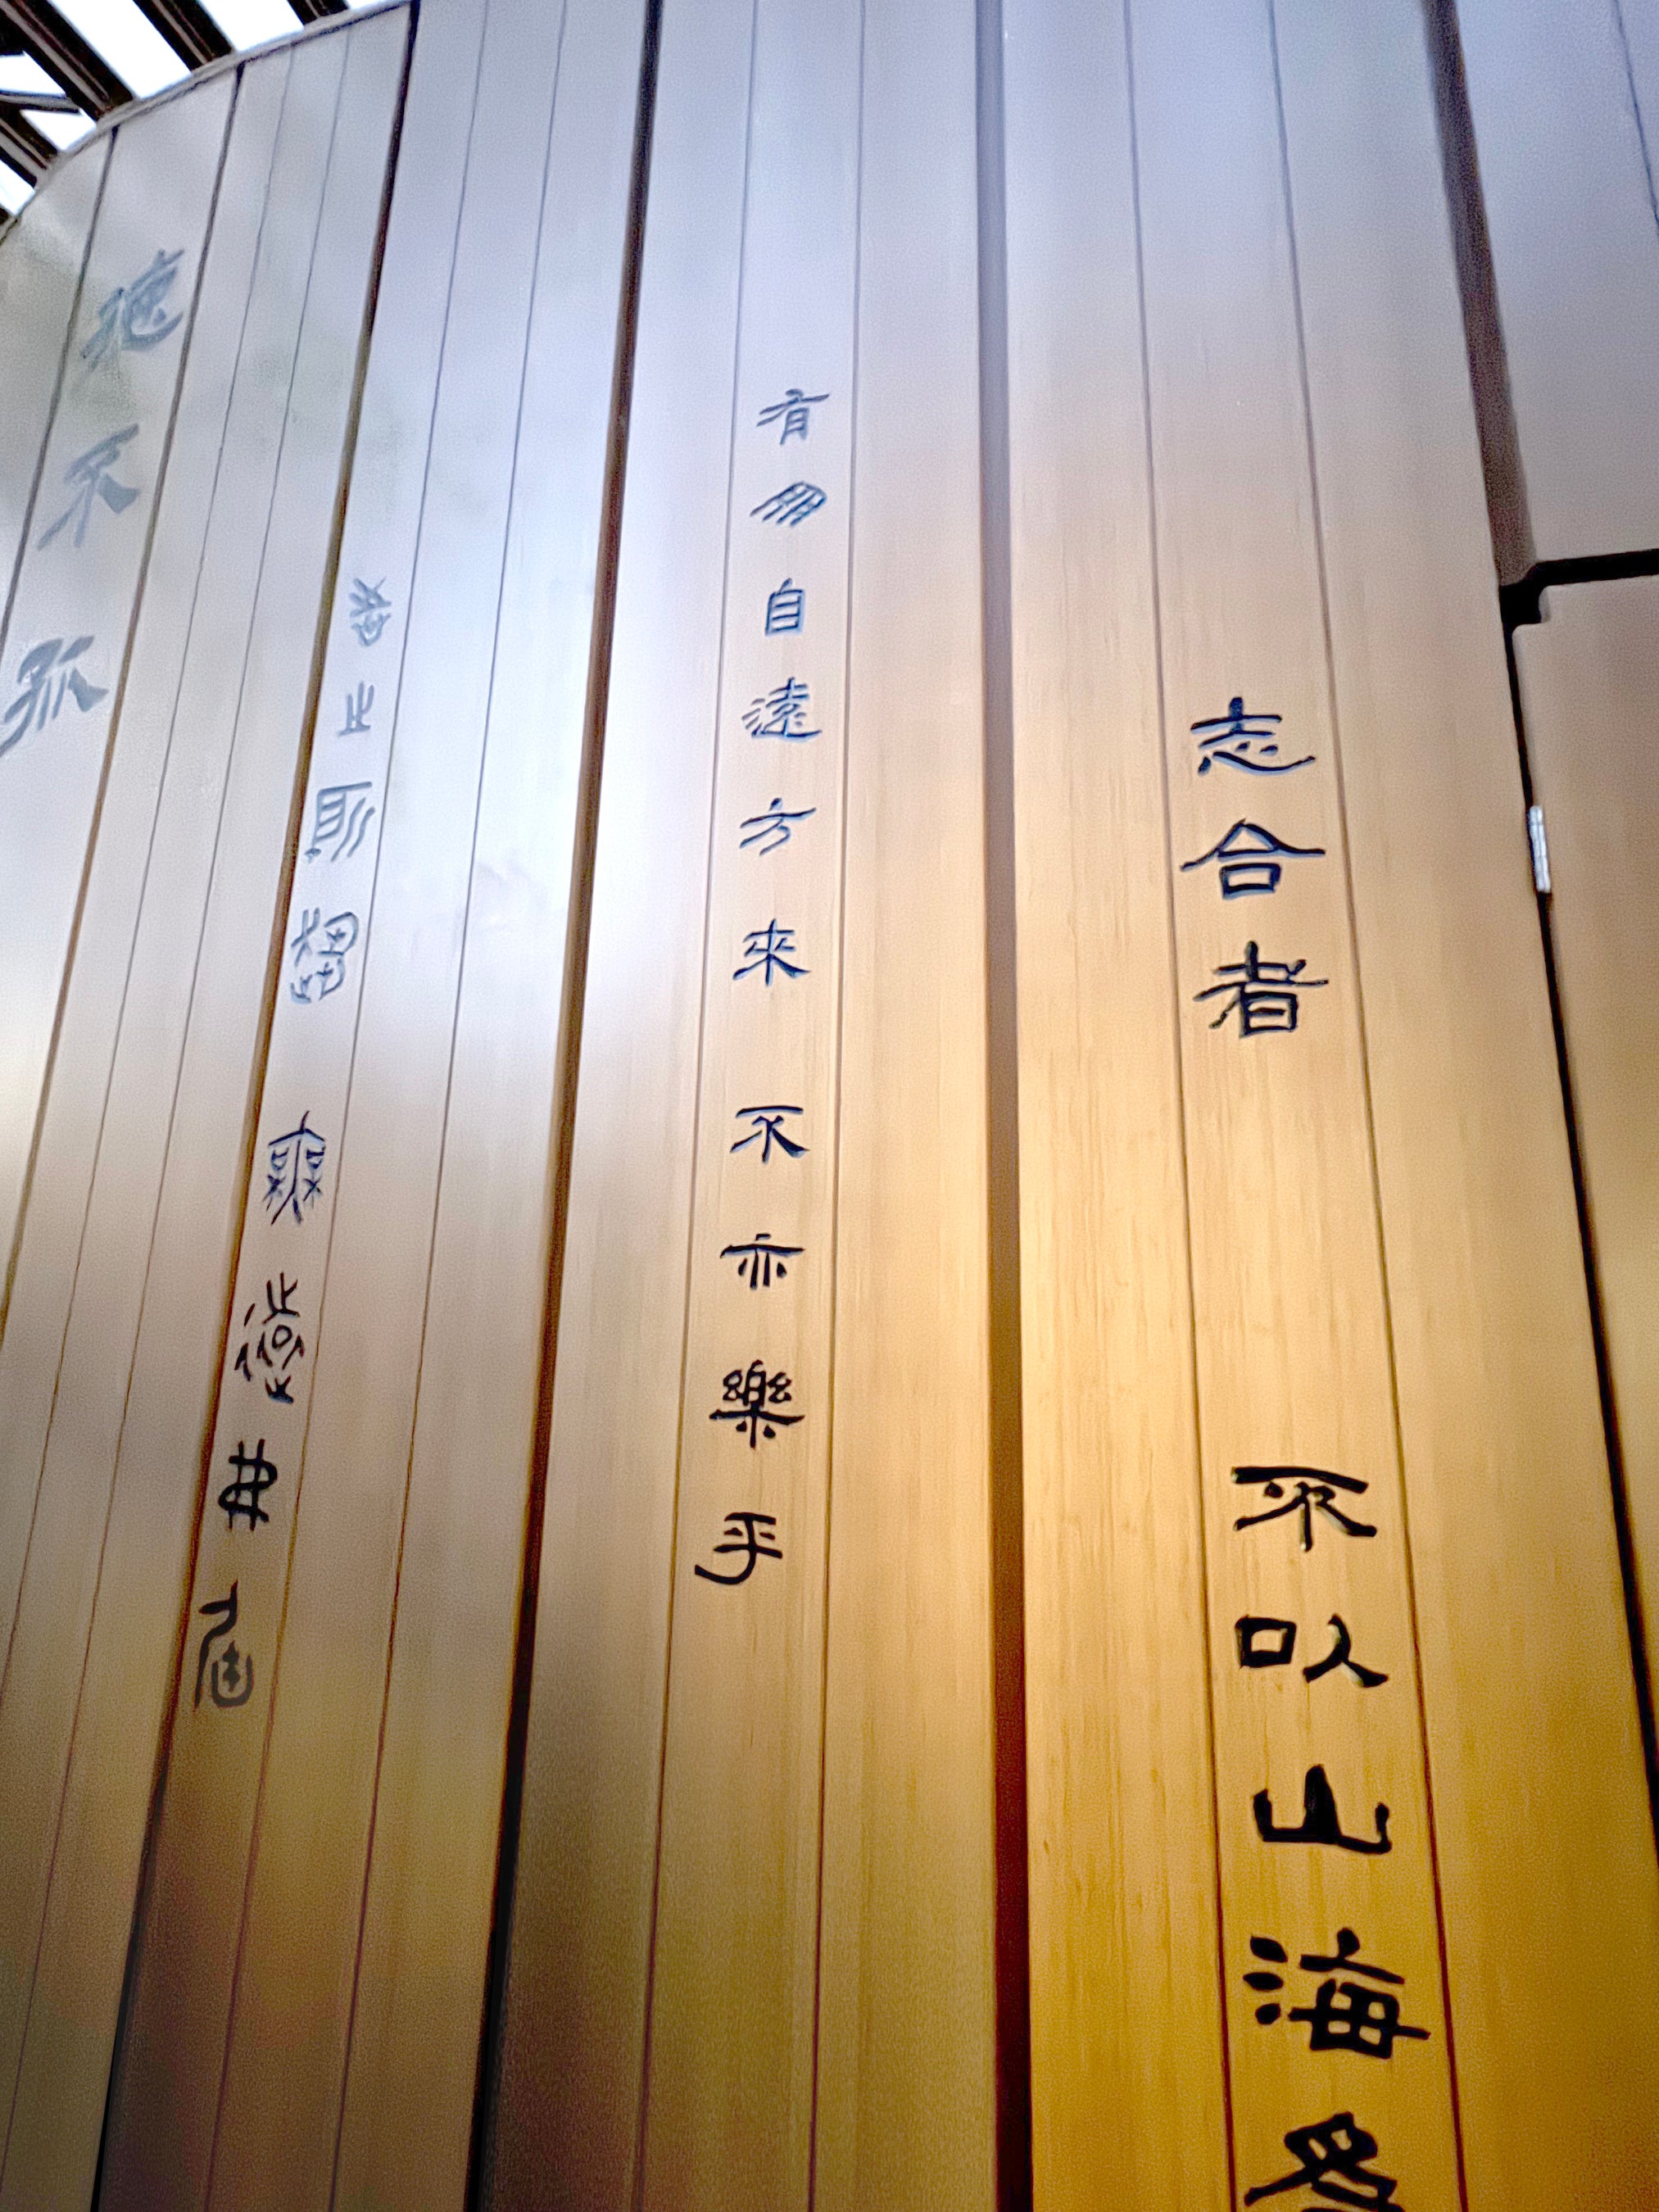 志合者 不以山海為
有朋自遠方來 不亦樂乎
德不孤